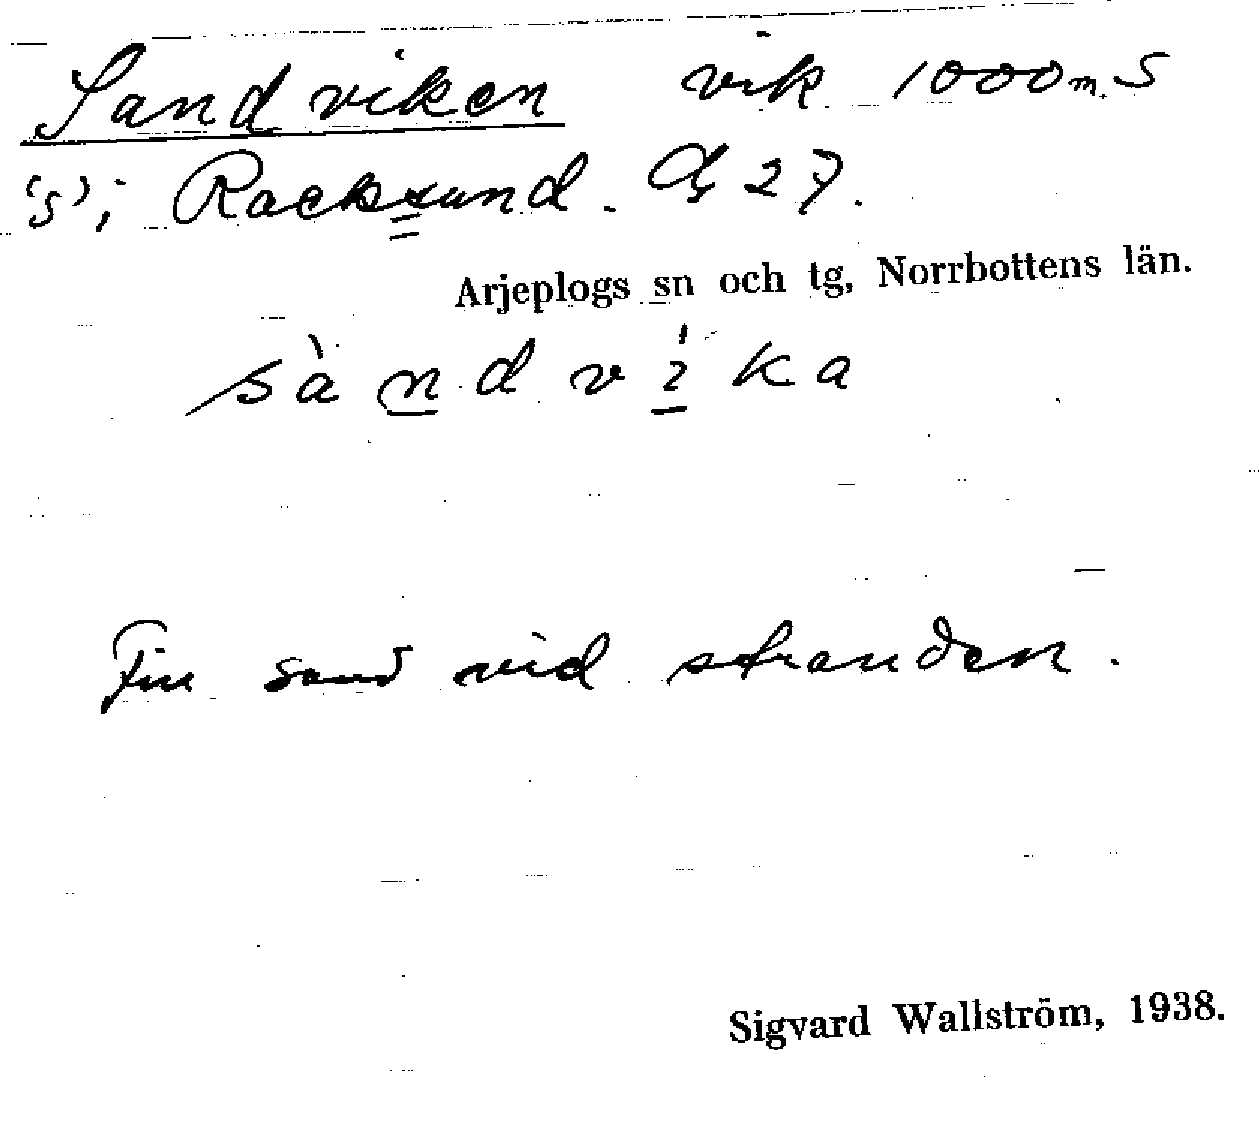 Sandviken vik 1000 m. S
's' i Racksund. G 27.
Arjeplogs sn och tg, Norrbottens län.
sàndvika
Fin sand vid stranden.
Sigvard Wallström, 1938.